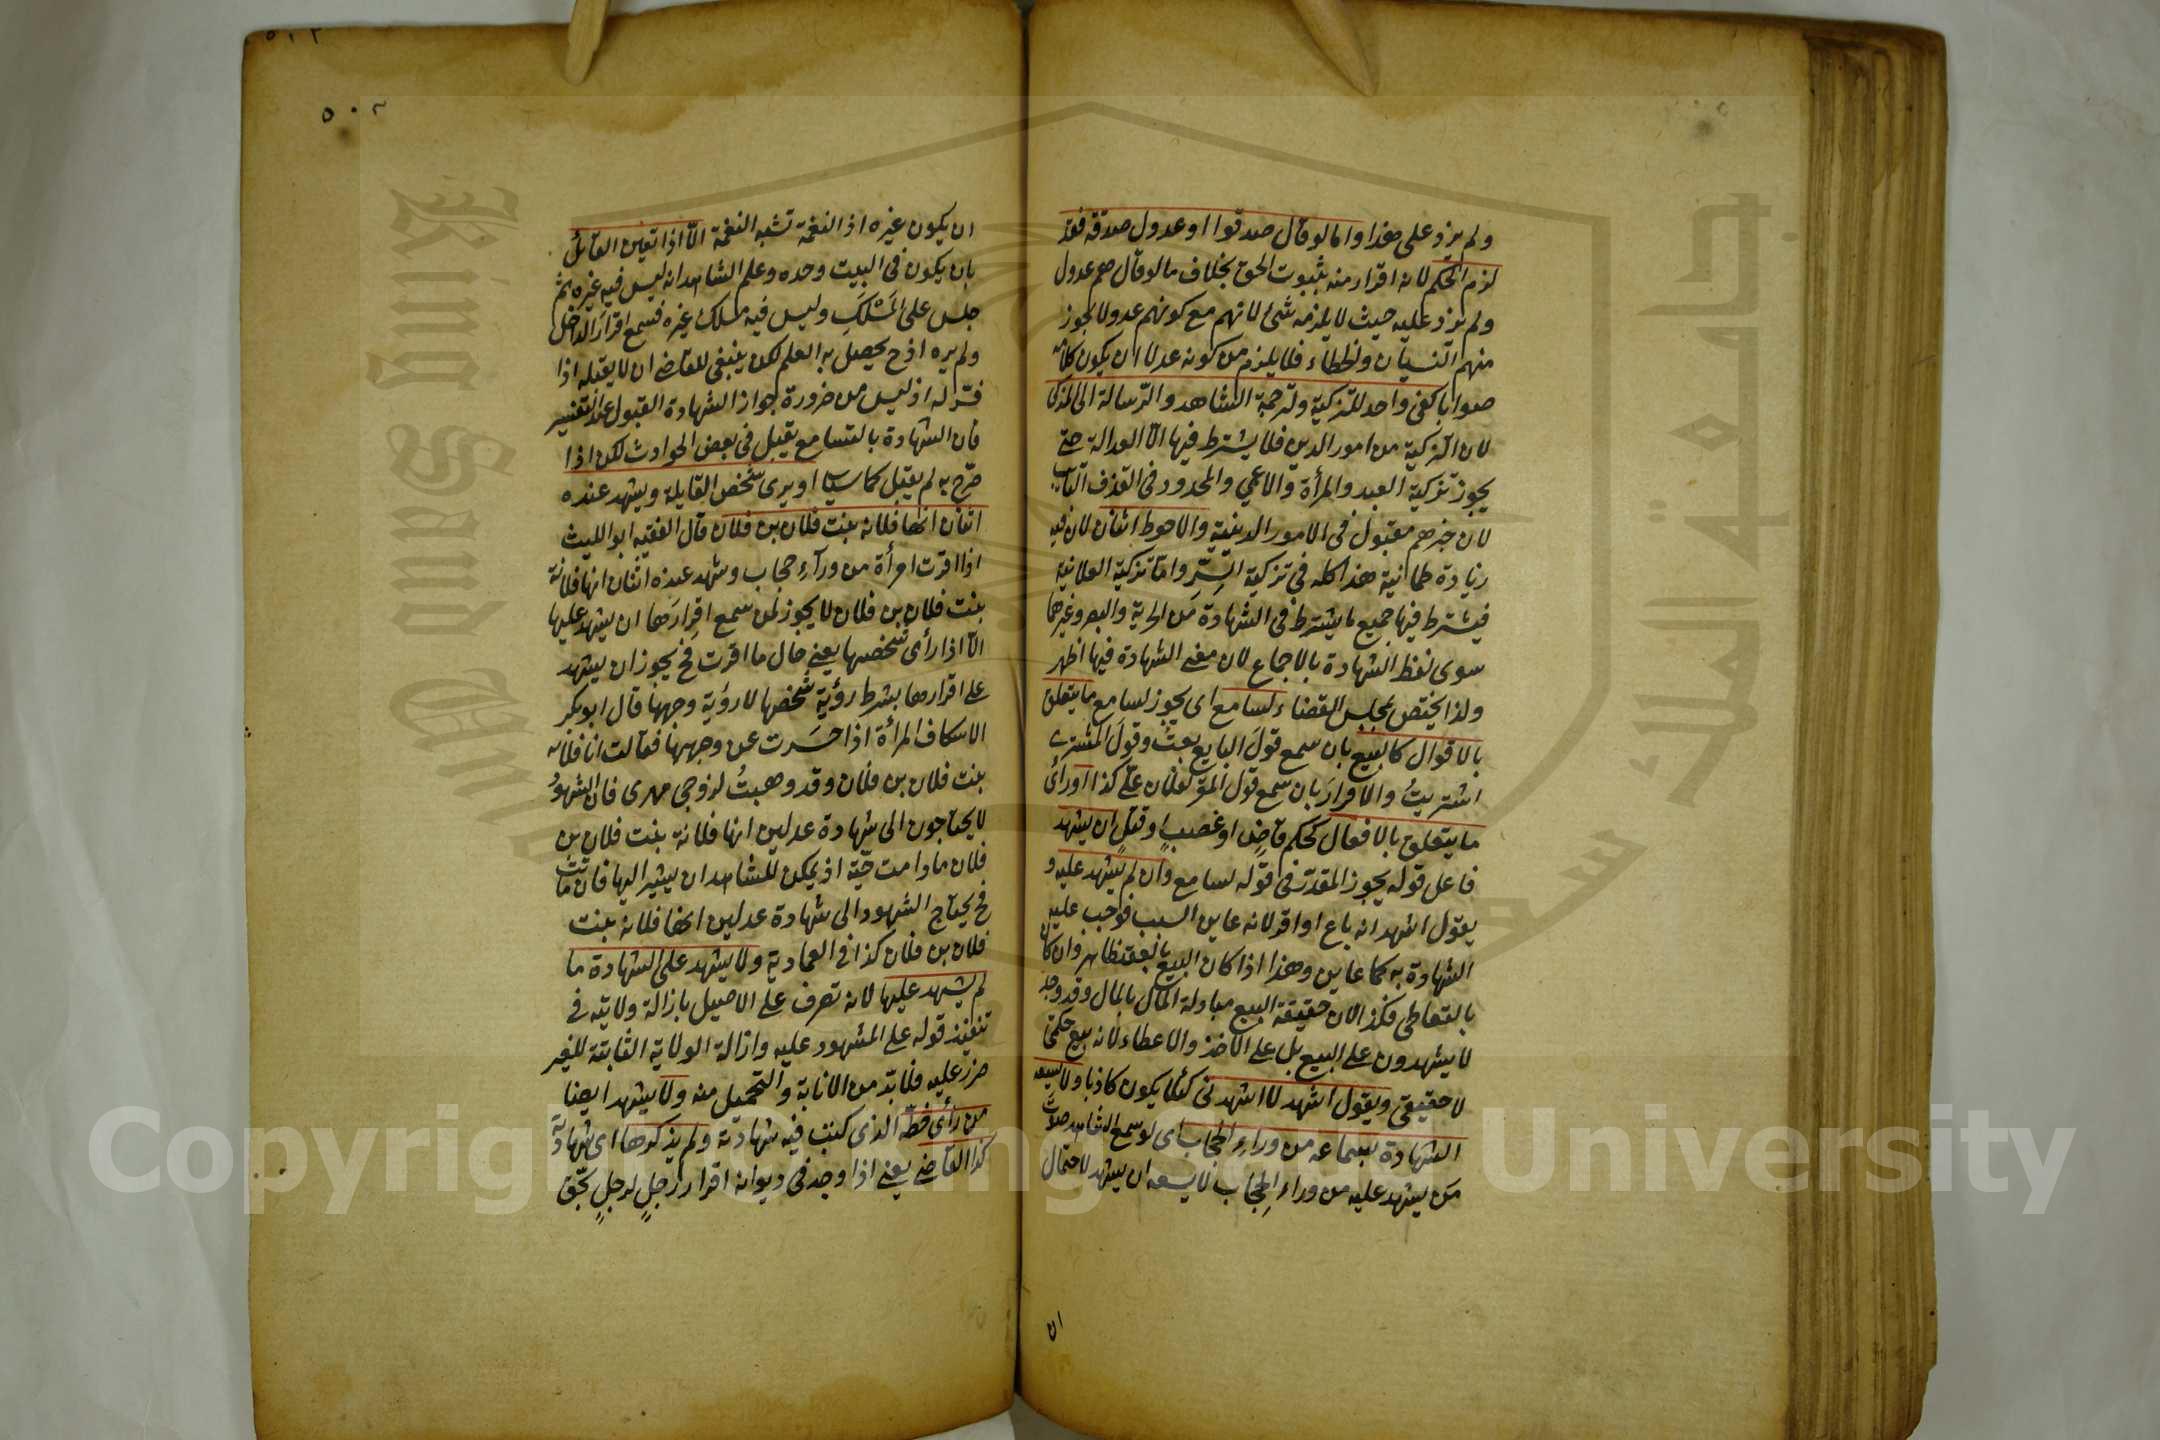 ولم يزد على هذا واما لو قال صدقوا او عدول صدقة فقد
لزم الحكم لانه اقرار منه بثبوت الحق بخلاف ما لو قال هم عدول
ولم يزد عليه حيث لا يلزمه شئ لانهم مع كونهم عدولا يجوز
منهم النسيان والخطاء فلا يلزم من كونه عدلا ان يكون كلامه
صوابا كفى واحد للتزكية وترجمة الشاهد والرسالة الى المزكى
لان التزكية من امور الدين فلا يشترط فيها الا العدالة حتى
يجوز تزكية العبد والمرأة والاعمى والمحدود فى القذف التائب
لان خبرهم مقبول فى الامور الدينية والاحوط اثنان لان فيه
زيادة طمانية هذا كله فى تزكية السِّرِّ واما تزكية العلانية
فيشترط فيها جميع ما يشترط فى الشهادة من الحرية والبصر وغيرهما
سوى لفظ الشهادة بالاجماع لان معنى الشهادة فيها اظهر
ولذا يختص بمجلس القضاء لسامع اى يجوز لسامع ما يتعلق
بالاقوال كالبيع بان سمع قولَ البايع بعتُ وقولَ المشترى
اشتريتُ والاقرارَ بان سمع قول المقر لفلان علىّ كذا او رائى
ما يتعلق بالافعال كحكم قاضٍ او غصبٍ او قتلٍ ان يشهد
فاعل قوله يجوز المقدّر فى قوله لسامع وان لم يشهد عليه و
يقول اشهد انه باع او اقر لانه عاين السبب فوجب عليه
الشهادة به كما عاين وهذا اذا كان البيع بالعقد ظاهر وان كان
بالتعاطى فكذا لان حقيقة البيع مبادلة المال بالمال وقد وجد
لا يشهدون على البيع بل على الاخذ والاعطاء لانه بيع حكمى
لا حقيقى ويقول اشهد لا اشهدنى كيلا يكون كاذبا ولا يسعه
الشهادة بسماعه من وراءِ الحجاب اى لو سمع الشاهد صوتَ
مَن يشهد عليه من وراءِ الحجاب لا يسعه ان يشهد لاحتمال
٥١
٥٠٢
ان يكون غيره اذ النغمة تشبه النغمة الّا اذا تعين القآئلُ
بان يكون فى البيت وحده وعلم الشاهد انه ليس فيه غيره ثم
جلس على المَسْلَكِ وليس فيه مسلك غيره فسمع اقرارَ الداخل
ولم يره اذ ح يحصل به العلم لكن ينبغى للقاضى ان لا يقبله اذا
فسّر له اذ ليس من ضرورة جواز الشهادة القبول عند التفسير
فان الشهادة بالتسامع يقبل فى بعض الحوادث لكن اذا
صرّح به لم يقبل كما سيأ او يرى شخص القايلة ويشهد عنده
اثنان انها فلانه بنت فلان بن فلان قال الفقيه ابو الليث
اذا اقرت امرأة من ورآءِ حجاب وشهد عنده اثنان انها فلانة
بنت فلان بن فلان لا يجوز لمن سمع اقرارَها ان يشهد عليها
الّا اذا رأى شخصها يعنى حال ما اقرت فح يجوز ان يشهد
على اقرارها بشرط رؤية شخصها لا رؤية وجهها قال ابو بكر
الاسكاف المرأة اذا حسَرت عن وجهها فقالت انا فلانه
بنت فلان بن فلان وقد وهبتُ لزوجى مهرى فان الشهودَ
لا يحتاجون الى شهادة عدلين انها فلانة بنت فلان بن
فلان ما دامت حيّة اذ يمكن للشاهد ان يشير اليها فان ماتت
فح يحتاج الشهود الى شهادة عدلين انها فلانه بنت
فلان بن فلان كذا فى العمادية ولا يشهد على الشهادة ما
لم يشهد عليها لانه تصرف على الاصيل بازالة ولايته فى
تنفيذ قوله على المشهود عليه وازالة الولاية الثابتة للغير
ضرر عليه فلا بدّ من الانابة والتحميل منه ولا يشهد ايضا
من رأى خطّه الذى كتب فيه شهادته ولم يذكرها اى شهادته
كذا القاضى يعنى اذا وجد فى ديوانه اقرار رجلٍ لرجلٍ بحق
Copyright © King Saud University
King Saud University
جامعة الملك سعود